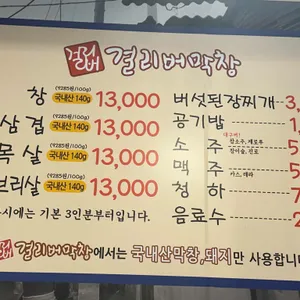 걸리버막창
(9285원/100g)
창 국내산 140g 13,000
(9285원/100g)
삼겹 국내산 140g 13,000
(9285원/100g)
목살 국내산 140g 13,000
(9285원/100g)
브리살 국내산 140g 13,000
시에는 기본 3인분부터입니다.
버섯된장찌개 3,
공기밥 1,
소주 5
맥주 5
카스, 테라
청하 7
음료수 2
걸리버막창에서는 국내산막창,돼지만 사용합니다